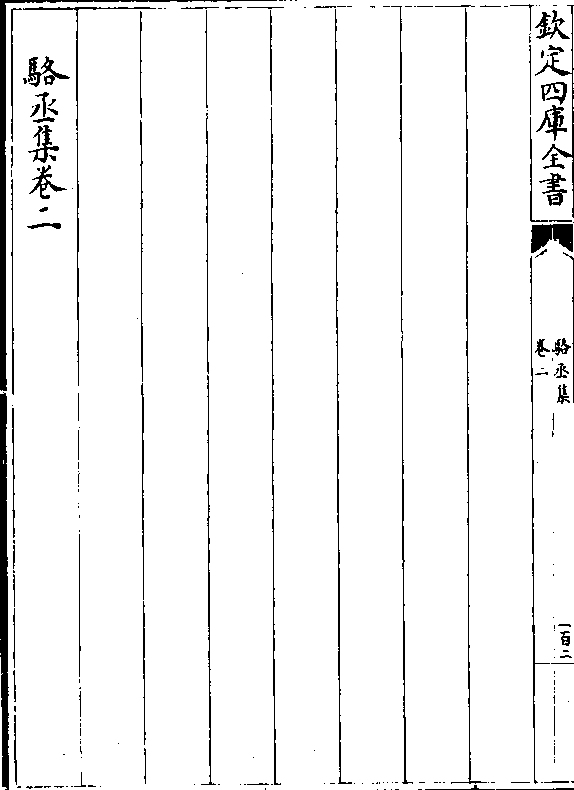 欽定四庫全書
駱丞集
卷二
一百二
駱丞集卷二